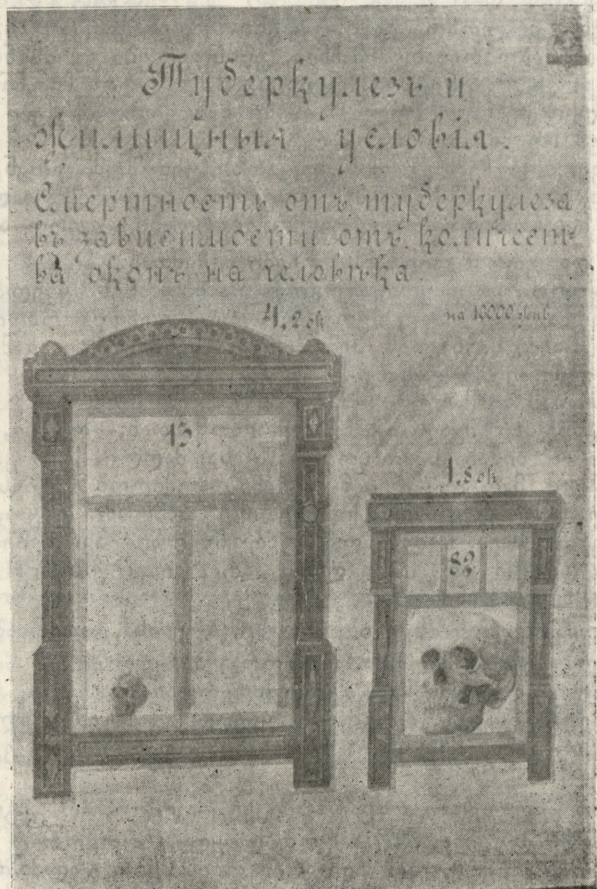 Туберкулезъ и
жилищныя условія.
Смертность отъ туберкулеза
въ зависимости отъ количест-
ва оконъ на человѣка.
4,2 ок
на 10000 жив.
13.
1,8 ок
82